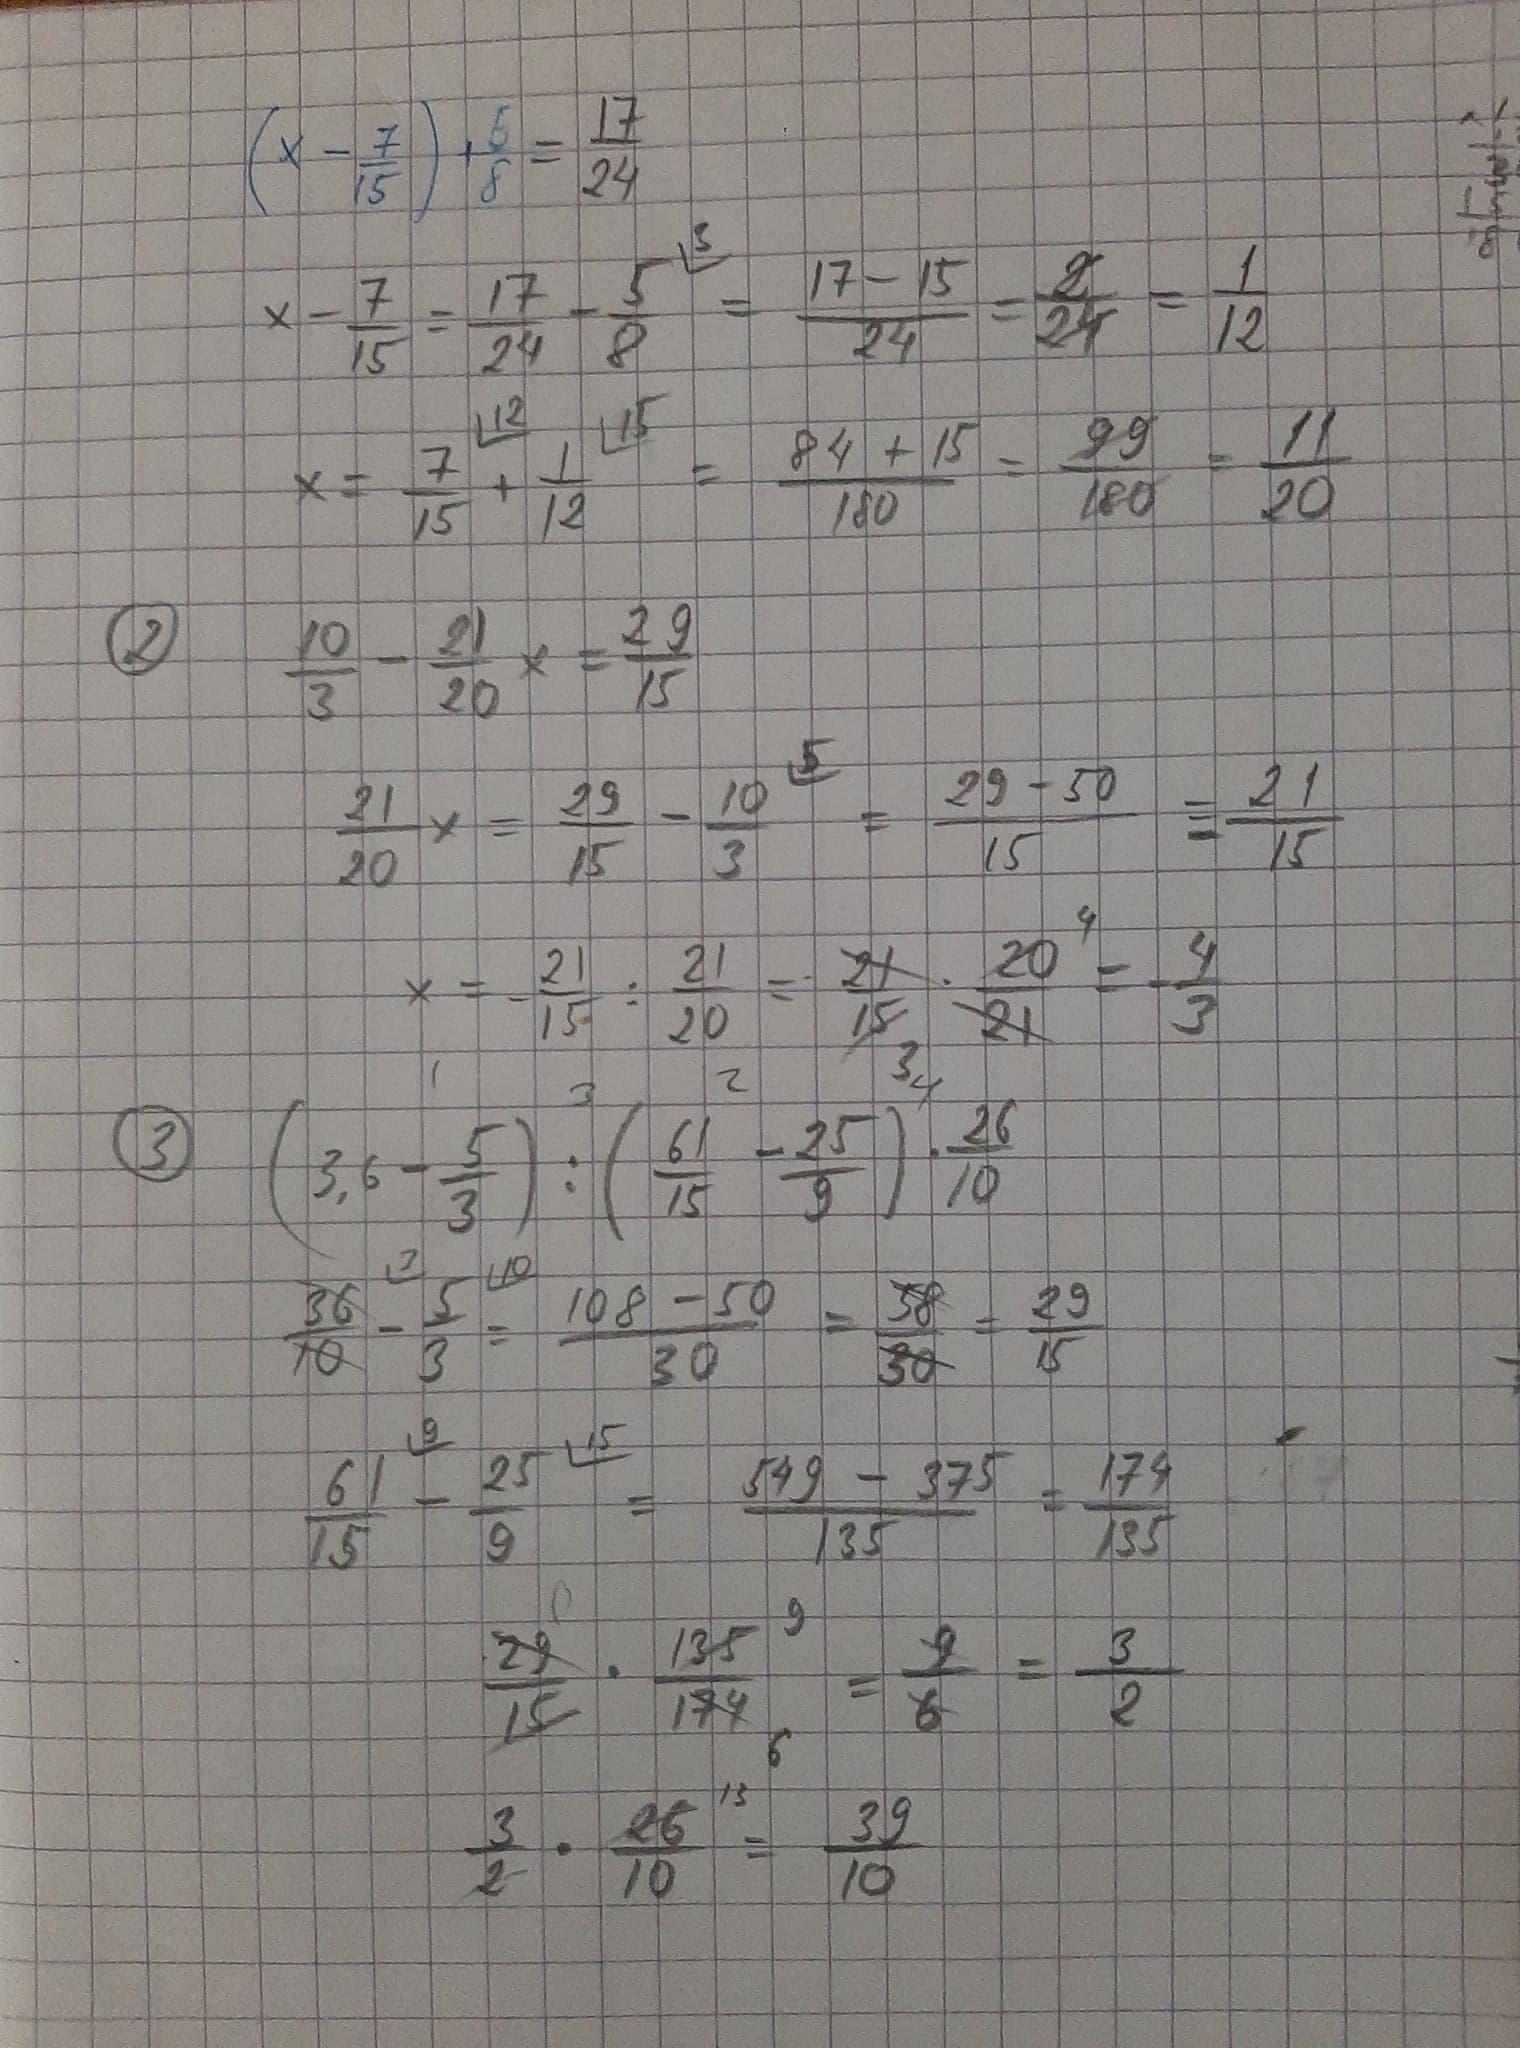 (x - 7/15) + 5/8 = 17/24
x - 7/15 = 17/24 - 5/8 ⌊3 = (17 - 15)/24 = 2/24 = 1/12
x = 7/15 ⌊12 + 1/12 ⌊15 = (84 + 15)/180 = 99/180 = 11/20
② 10/3 - 21/20 x = 29/15
21/20 x = 29/15 - 10/3 ⌊5 = (29 - 50)/15 = 21/15
x = - 21/15 : 21/20 = - 21/15 3 · 20/21 4 = - 4/3
1 3 2 4
③ (3,6 - 5/3) : (61/15 - 25/9) · 26/10
36/10 ⌊3 - 5/3 ⌊10 = (108 - 50)/30 = 58/30 = 29/15
61/15 ⌊9 - 25/9 ⌊15 = (549 - 375)/135 = 174/135
29/15 · 135/174 9 6 = 9/6 = 3/2
3/2 · 26/10 13 = 39/10